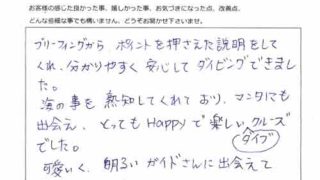 お客様の感じた良かった事、嬉しかった事、お気づきになった点、改善点。
どんな些細な事でも構いません、どうぞお聞かせ下さいませ。
ブリーフィングから ポイントを押さえた説明をして
くれ、分かりやすく 安心して ダイビングできまし
た。
海の事を 熟知してくれており、マンタにも
出会え、とってもHappyで楽しいクルーズ
でした。 ダイブ
可愛いく、明るいガイドさんに出会えて